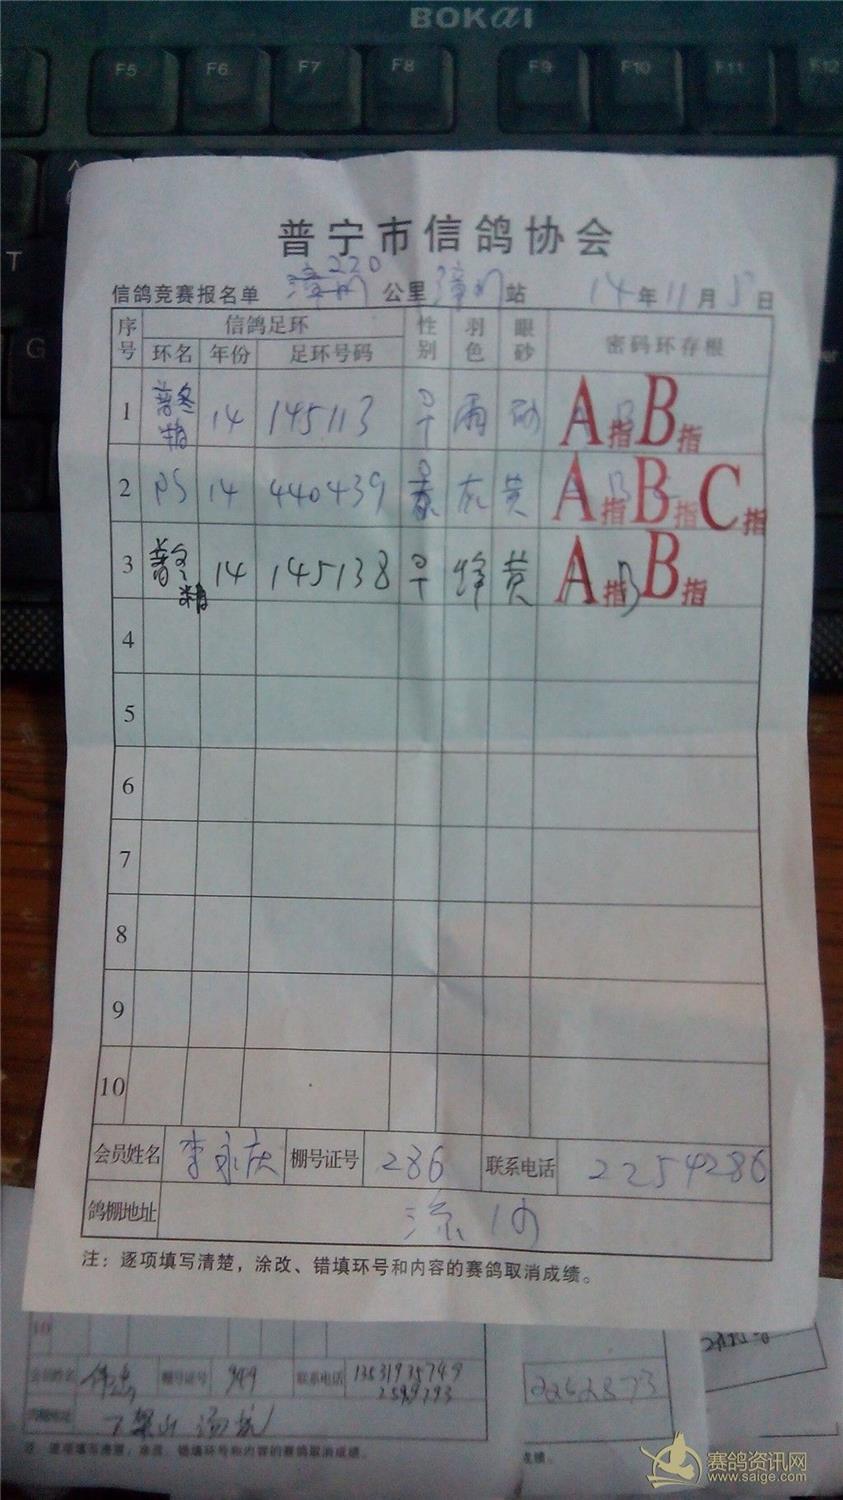 BOKai
F5 F6 F7 F8 F9 F10 F11 F12
T
G
普宁市信鸽协会
信鸽竞赛报名单 220 公里 漳州 站 14年11月5日
序号 信鸽足环 性别 羽色 眼砂 密码环存根
环名 年份 足环号码
1 普冬精 14 145113 雨 砂 A指B指
2 PS 14 440439 灰 黄 A指B指C指
3 普冬精 14 145138 ♀ 绛 黄 A指B指
4
5
6
7
8
9
10
会员姓名 李永庆 棚号证号 286 联系电话 2254286
鸽棚地址
注：逐项填写清楚，涂改、错填环号和内容的赛鸽取消成绩。
10
会员姓名 棚号证号 949 联系电话 13531935749
2599793
2262873
鸽棚地址 下架山
注：逐项填写清楚，涂改、错填环号和内容的赛鸽取消成绩。
成绩。
赛鸽资讯网
www.saige.com